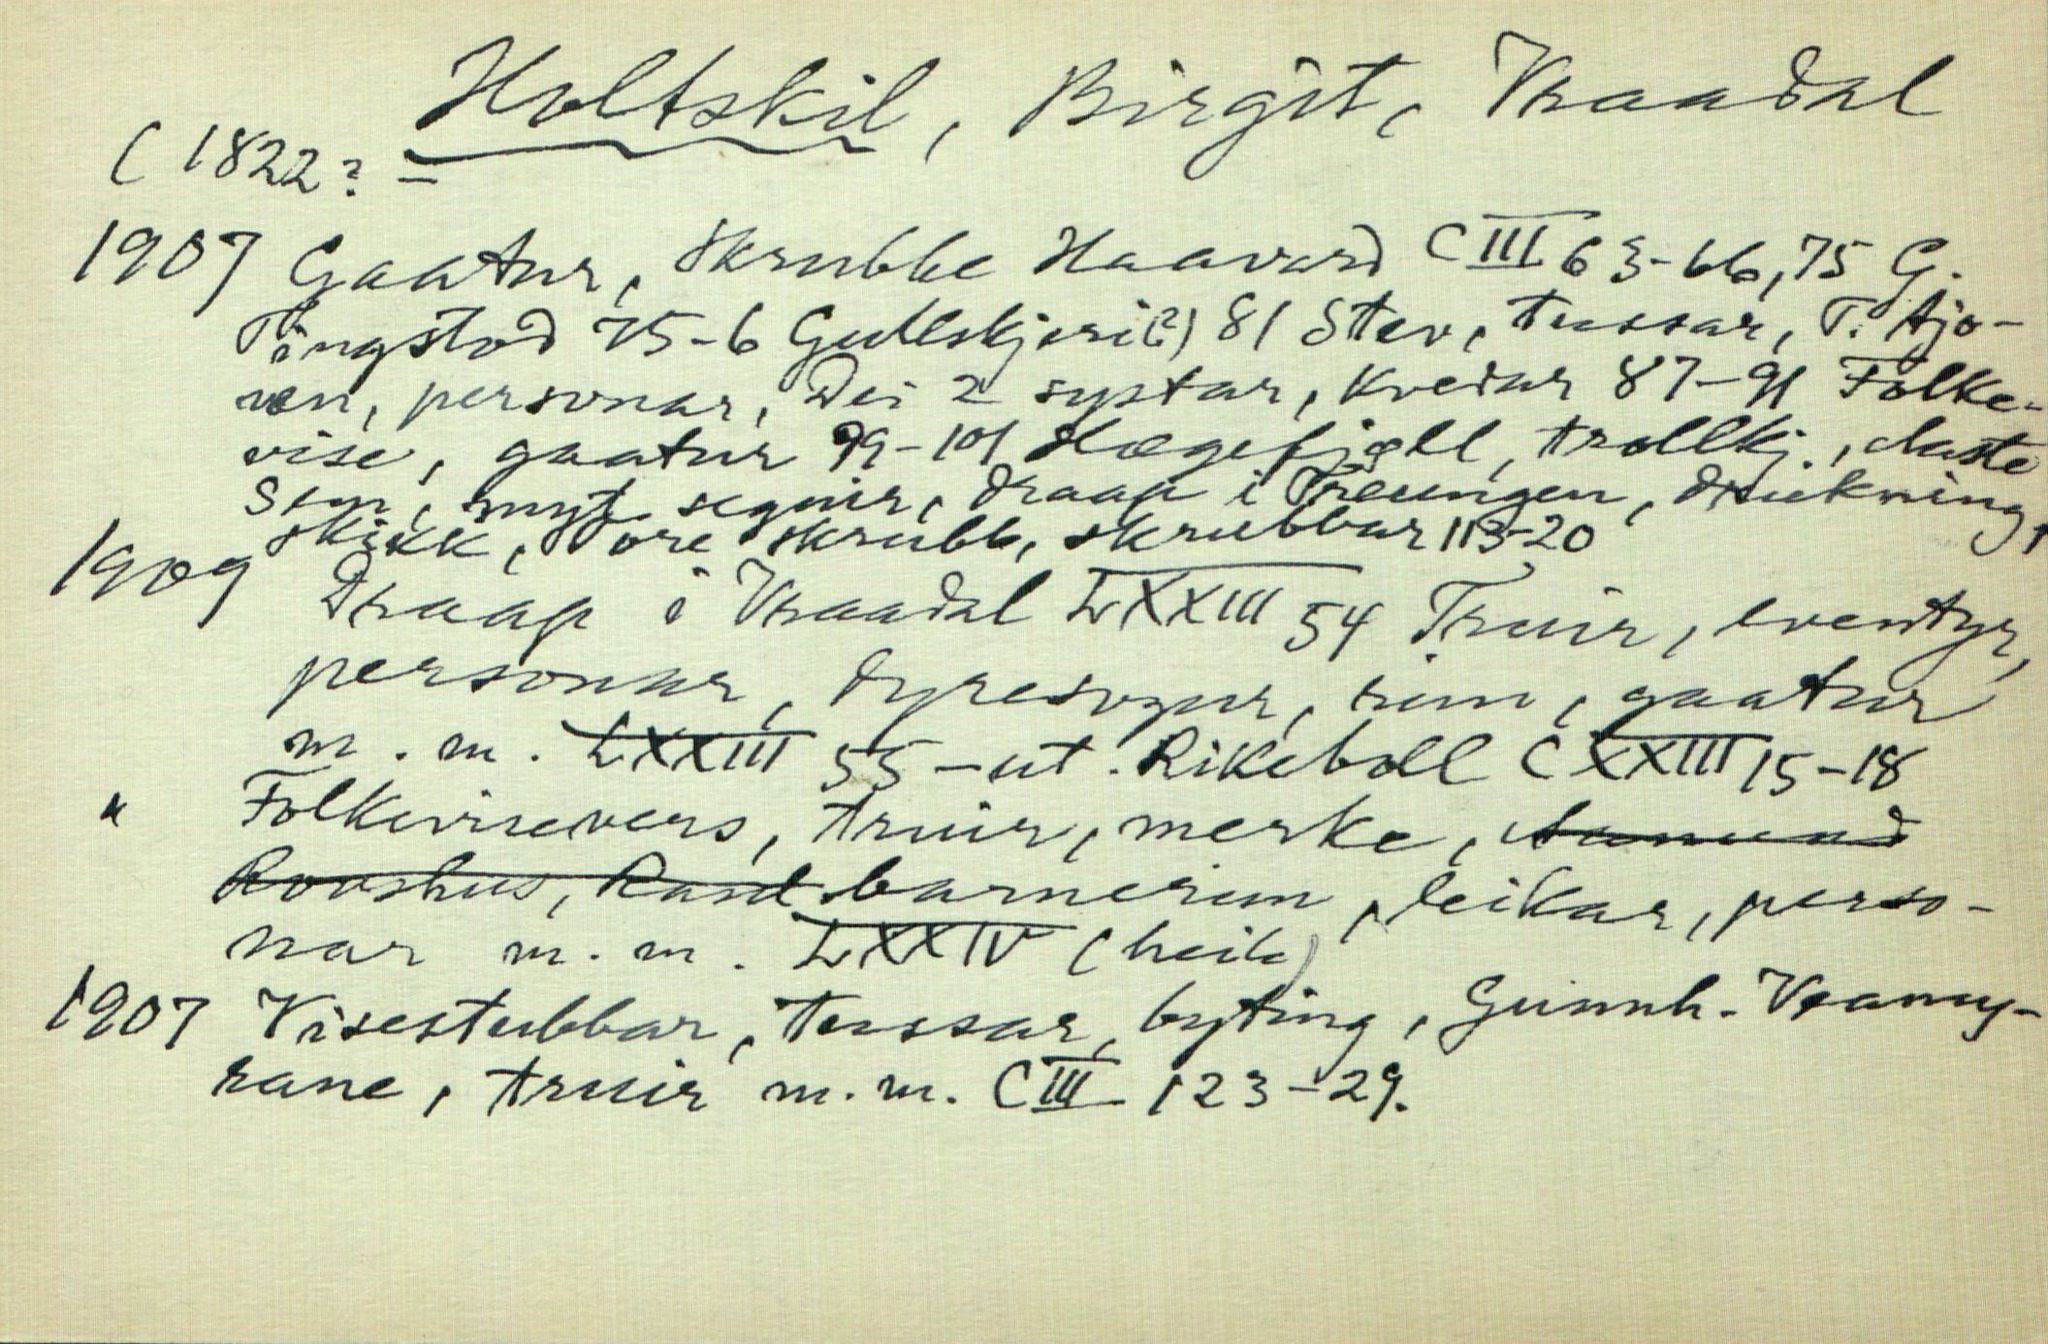 Holtskil, Birgit, Vraadal
(1822? –
1907 Gaatur, Skrubbe Haavard CIII 63-66, 75 G.
Tingstod 75-6 Gullskjeri(?) 81 Stev, tussar, T. Hjo-
ven, personar, Dei 2 systar, Kvedar 87-91 Folke-
vise, gaatur 99-101 Hægefjell, trollkj., Aaste
Segn, myt. segnir, draap i Treungen, drukning,
skikk, Tore skrubb, skrubbar 113-20
1909 Draap i Vraadal LXXIII 54 Truir, eventyr,
personar, dyresogur, rim, gaatur
m. m. LXXIII 55 - ut. Rikeboll CXXIII 15-18
" Folkevisevers, truir, merke, Aamund
Roashus, Rand barnerim, leikar, perso-
nar m. m. LXXIV (heile)
1907 Visestubbar, tussar, byting, Gunnh. Vraamy-
rane, truir m. m. CIII 123-29.